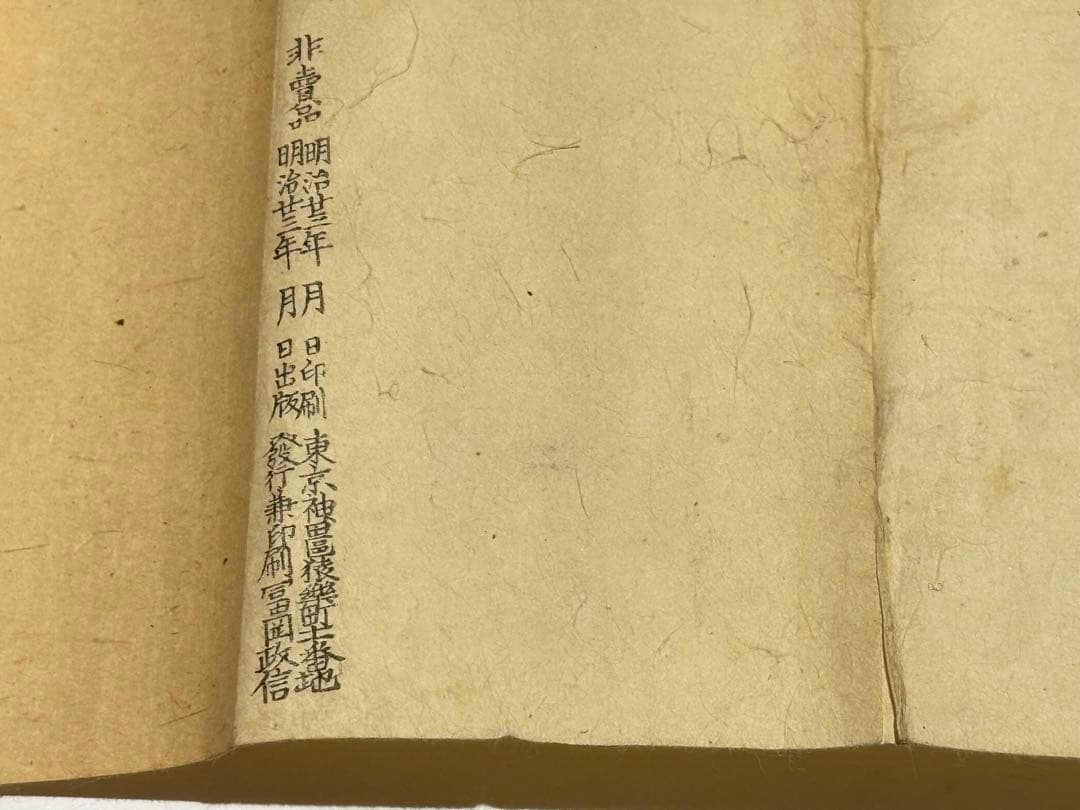 非賣品
明治廿三年 月 日印刷
明治廿三年 月 日出版
東京神田區猿樂町十一番地
發行兼印刷冨岡政信